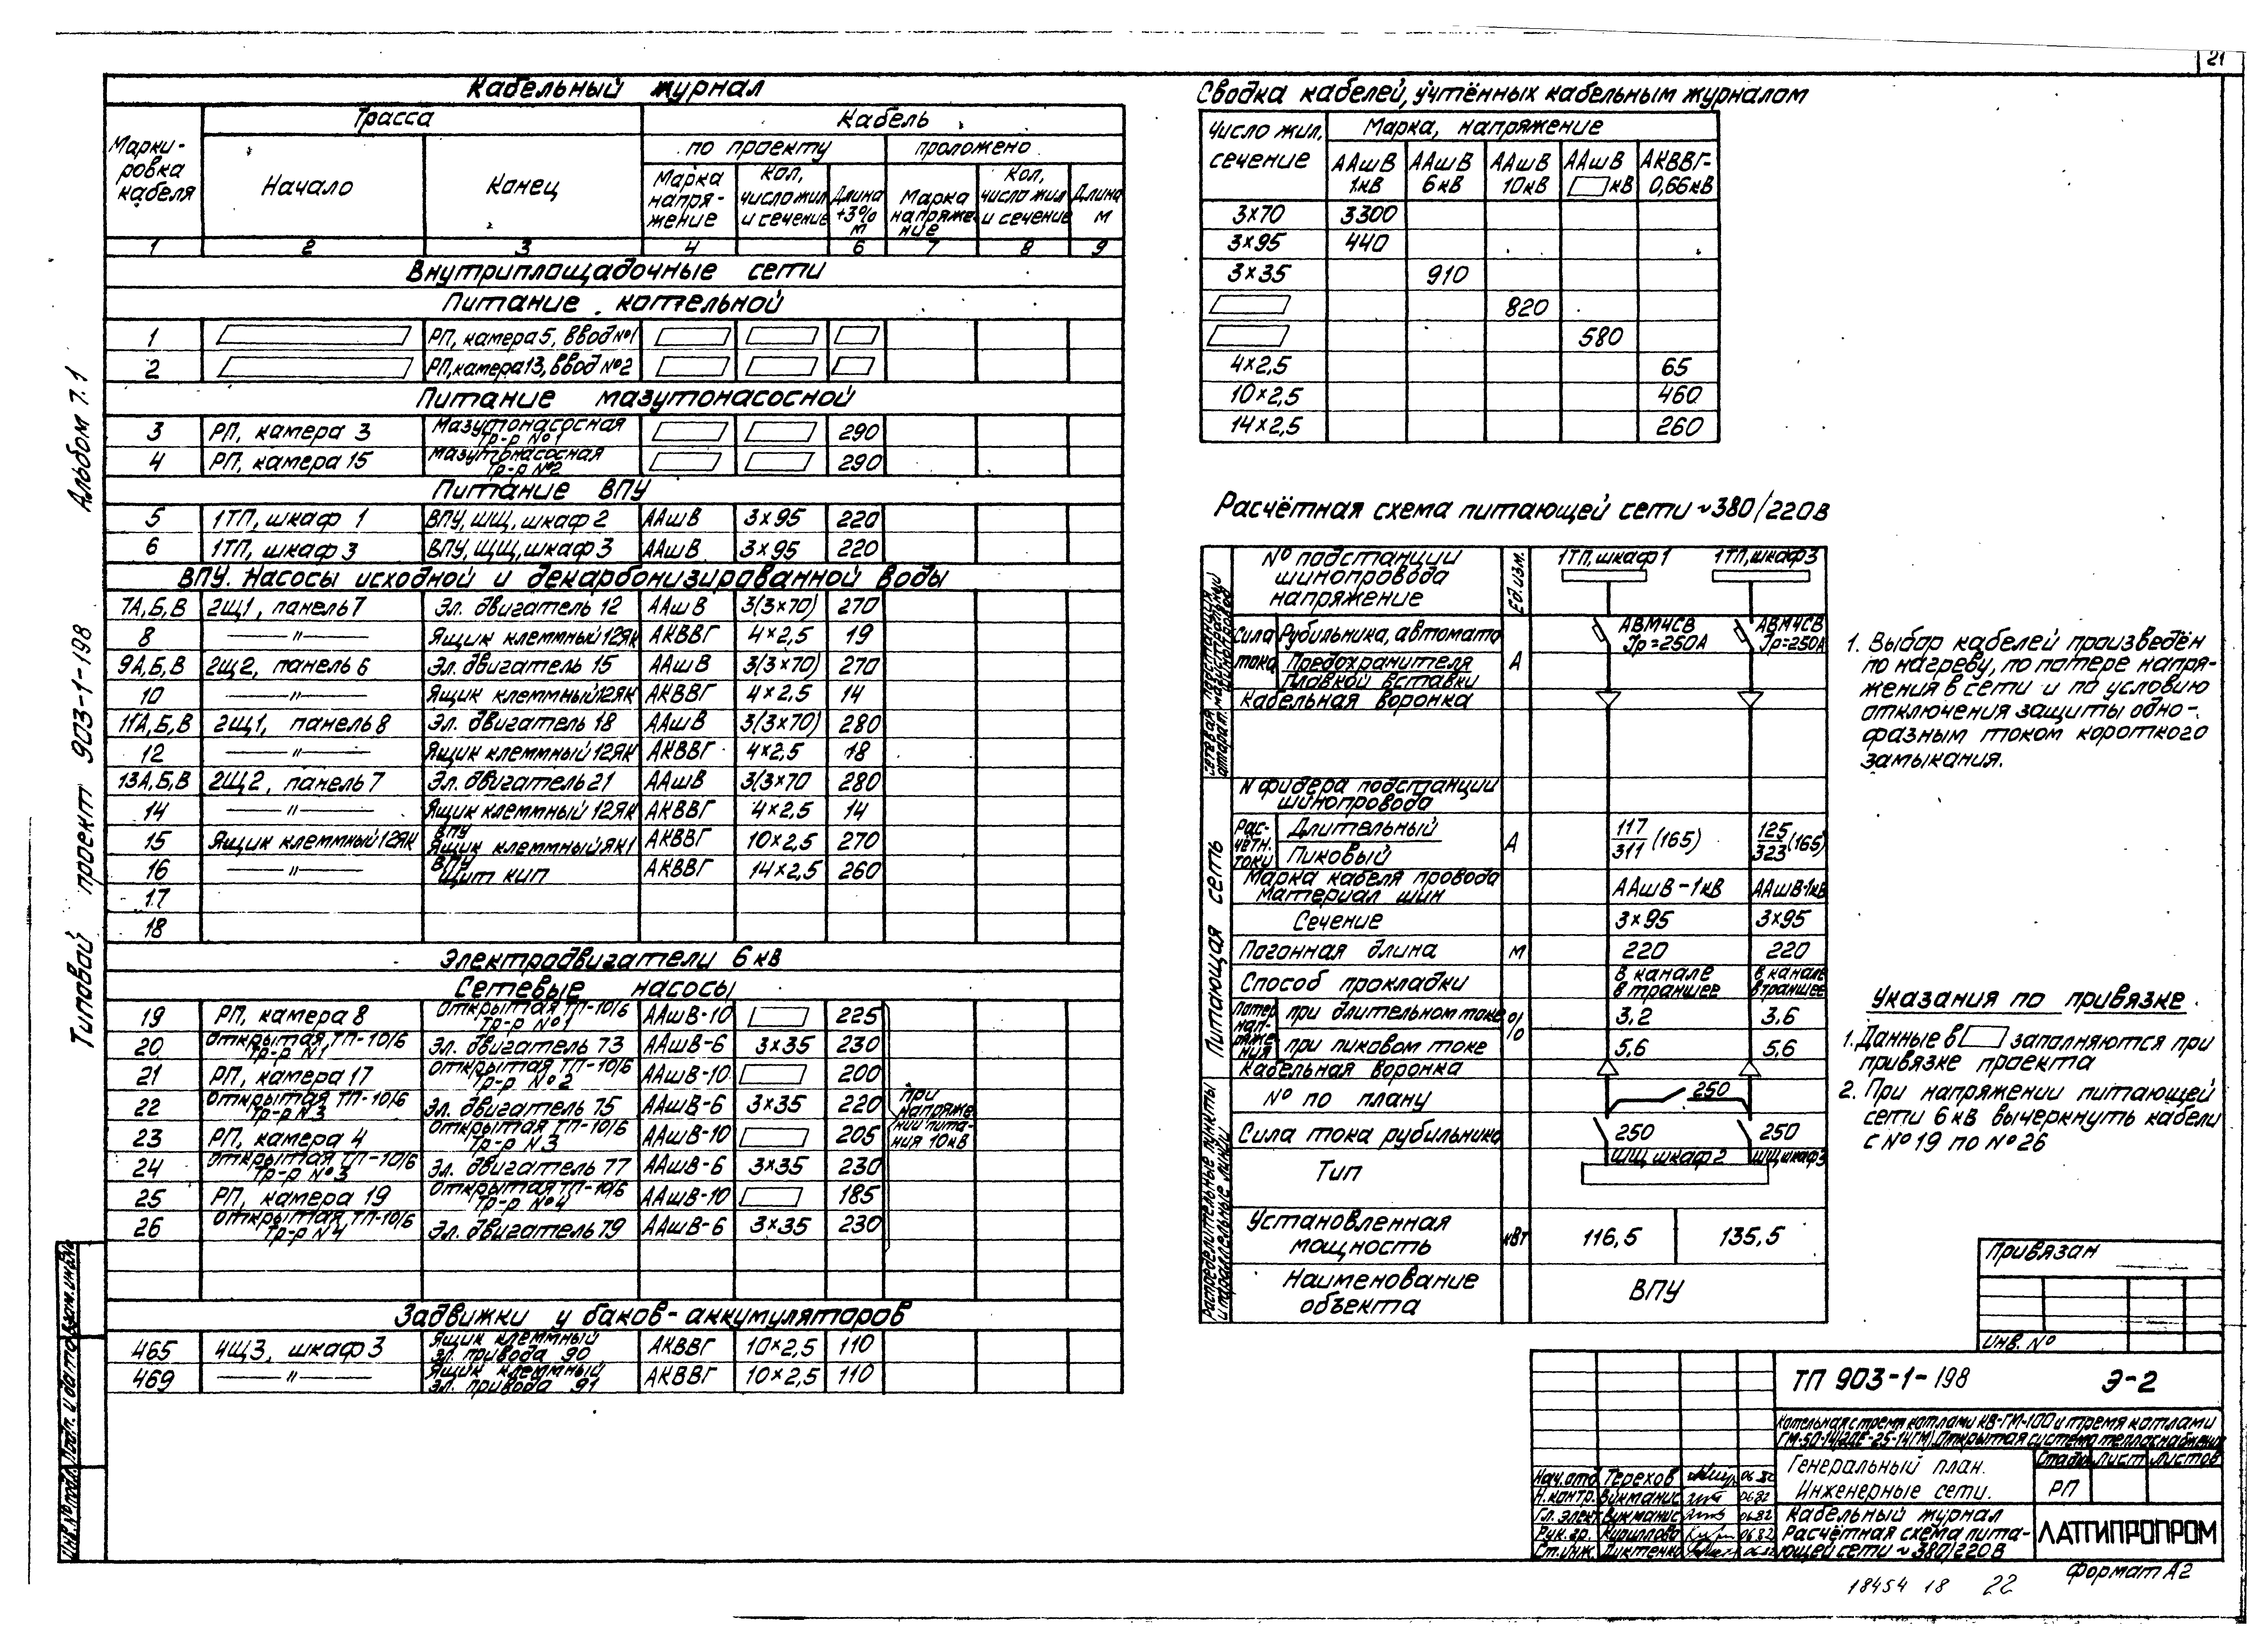 21
Кабельный журнал
Марки-
ровка
кабеля
Трасса
Кабель
Начало
Конец
по проекту
проложено
Марка
напря-
жение
Кол,
число жил
и сечение
Длина
+3%
м
Марка
напряже-
ние
Кол,
число жил
и сечение
Длина
м
1 2 3 4 6 7 8 9
Внутриплощадочные сети
Питание котельной
1 РП, камера 5, ввод №1
2 РП, камера 13, ввод №2
Питание мазутонасосной
3 РП, камера 3 Мазутонасосная Тр-р №1 290
4 РП, камера 15 Мазутонасосная Тр-р №2 290
Питание ВПУ
5 1ТП, шкаф 1 ВПУ, ЩЩ, шкаф 2 ААшВ 3×95 220
6 1ТП, шкаф 3 ВПУ, ЩЩ, шкаф 3 ААшВ 3×95 220
ВПУ. Насосы исходной и декарбонизированной воды
7А,Б,В 2Щ1, панель 7 Эл. двигатель 12 ААшВ 3(3×70) 270
8 —〃— Ящик клеммный 12ЯК АКВВГ 4×2,5 19
9А,Б,В 2Щ2, панель 6 Эл. двигатель 15 ААшВ 3(3×70) 270
10 —〃— Ящик клеммный 12ЯК АКВВГ 4×2,5 14
11А,Б,В 2Щ1, панель 8 Эл. двигатель 18 ААшВ 3(3×70) 280
12 —〃— Ящик клеммный 12ЯК АКВВГ 4×2,5 18
13А,Б,В 2Щ2, панель 7 Эл. двигатель 21 ААшВ 3(3×70 280
14 —〃— Ящик клеммный 12ЯК АКВВГ 4×2,5 14
15 Ящик клеммный 12ЯК ВПУ Ящик клеммный ЯК1 АКВВГ 10×2,5 270
16 —〃— ВПУ Щит КИП АКВВГ 14×2,5 260
17
18
Электродвигатели 6кв
Сетевые насосы
19 РП, камера 8 Открытая ТП-10/6 Тр-р №1 ААшВ-10 225
20 Открытая ТП-10/6 Тр-р N1 Эл. двигатель 73 ААшВ-6 3×35 230
21 РП, камера 17 Открытая ТП-10/6 Тр-р №2 ААшВ-10 200
22 Открытая ТП-10/6 Тр-р N3 Эл. двигатель 75 ААшВ-6 3×35 220
23 РП, камера 4 Открытая ТП-10/6 Тр-р N3 ААшВ-10 205
24 Открытая ТП-10/6 Тр-р №3 Эл. двигатель 77 ААшВ-6 3×35 230
25 РП, камера 19 Открытая ТП-10/6 Тр-р №4 ААшВ-10 185
26 Открытая ТП-10/6 Тр-р N4 Эл. двигатель 79 ААшВ-6 3×35 230
при
напряже
нии пита-
ния 10кв
Задвижки у баков-аккумуляторов
465 4Щ3, шкаф 3 Ящик клеммный эл. привода 90 АКВВГ 10×2,5 110
469 —〃— Ящик клеммный эл. привода 91 АКВВГ 10×2,5 110
Сводка кабелей, учтённых кабельным журналом
Число жил,
сечение
Марка, напряжение
ААшВ 1кВ
ААшВ 6кВ
ААшВ 10кВ
ААшВ кВ
АКВВГ- 0,66кВ
3×70 3300
3×95 440
3×35 910
820
580
4×2,5 65
10×2,5 460
14×2,5 260
Расчётная схема питающей сети ~380/220В
№ подстанции
шинопровода
напряжение
Ед. изм.
1ТП, шкаф 1
1ТП, шкаф 3
Сила
тока
Рубильника, автомата
Предохранителя
Плавкой вставки
А
АВМ4СВ
Iр=250А
АВМ4СВ
Iр=250А
Кабельная воронка
N фидера подстанции
шинопровода
Рас-
чётн.
токи
Длительный
Пиковый
А
117
311 (165)
125
323 (165)
Марка кабеля провода
материал шин
ААшВ-1кВ ААшВ-1кВ
Сечение 3×95 3×95
Погонная длина м 220 220
Способ прокладки
в канале
в траншее
в канале
в траншее
Потер
нап-
ряже-
ния
при длительном токе % 3,2 3,6
при пиковом токе 5,6 5,6
Кабельная воронка
№ по плану 250
Сила тока рубильника 250 250
Тип
ЩЩ шкаф 2 ЩЩ шкаф 3
Установленная
мощность
кВт 116,5 135,5
Наименование
объекта
ВПУ
Питающая сеть
Распределительные пункты
и параллельные линии
1. Выбор кабелей произведён
по нагреву, по потере напря-
жения в сети и по условию
отключения защиты одно-
фазным током короткого
замыкания.
Указания по привязке
1. Данные в заполняются при
привязке проекта
2. При напряжении питающей
сети 6кв вычеркнуть кабели
с №19 по №26
Привязан
Инв. №
ТП 903-1-198 Э-2
Котельная с тремя котлами КВ-ГМ-100 и тремя котлами
Открытая система теплоснабжения
Генеральный план.
Инженерные сети.
Стадия Лист Листов
РП
Кабельный журнал
Расчётная схема пита-
ющей сети ~380/220В
ЛАТГИПРОПРОМ
Нач. отд Терехов 06.82
Н. контр. Викманис 06.82
Гл. элект Викманис 06.82
Рук. гр. Кириллова 06.82
Ст. инж. Диктенко 06.82
Формат А2
18454 18 22
Типовой проект 903-1-198 Альбом 7.1
Инв. № подл. Подп. и дата Взам. инв. №